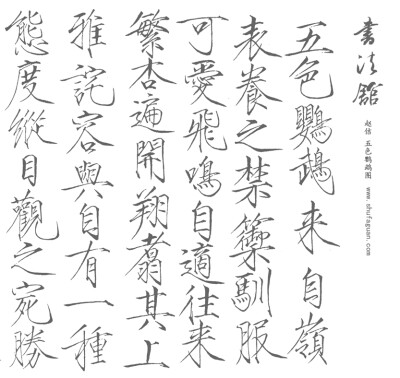 書法舘
赵佶 五色鹦鹉图 www.shufaguan.com
五色鸚鵡来自嶺
表養之禁籞馴服
可愛飛鳴自適往来
繁杏遍開翔翥其上
雅詫容與自有一種
態度縱目觀之宛勝